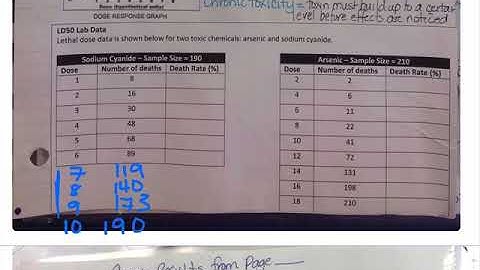 Chronic Toxicity = toxin must build up to a certain
level before effects are noticed
DOSE RESPONSE GRAPH
LD50 Lab Data
Lethal dose data is shown below for two toxic chemicals: arsenic and sodium cyanide.
Sodium Cyanide – Sample Size = 190
Dose Number of deaths Death Rate (%)
1 8
2 16
3 30
4 48
5 68
6 89
7 119
8 140
9 173
10 190
Arsenic – Sample Size = 210
Dose Number of deaths Death Rate (%)
2 2
4 6
6 11
8 22
10 41
12 72
14 131
16 198
18 210
Results from Page